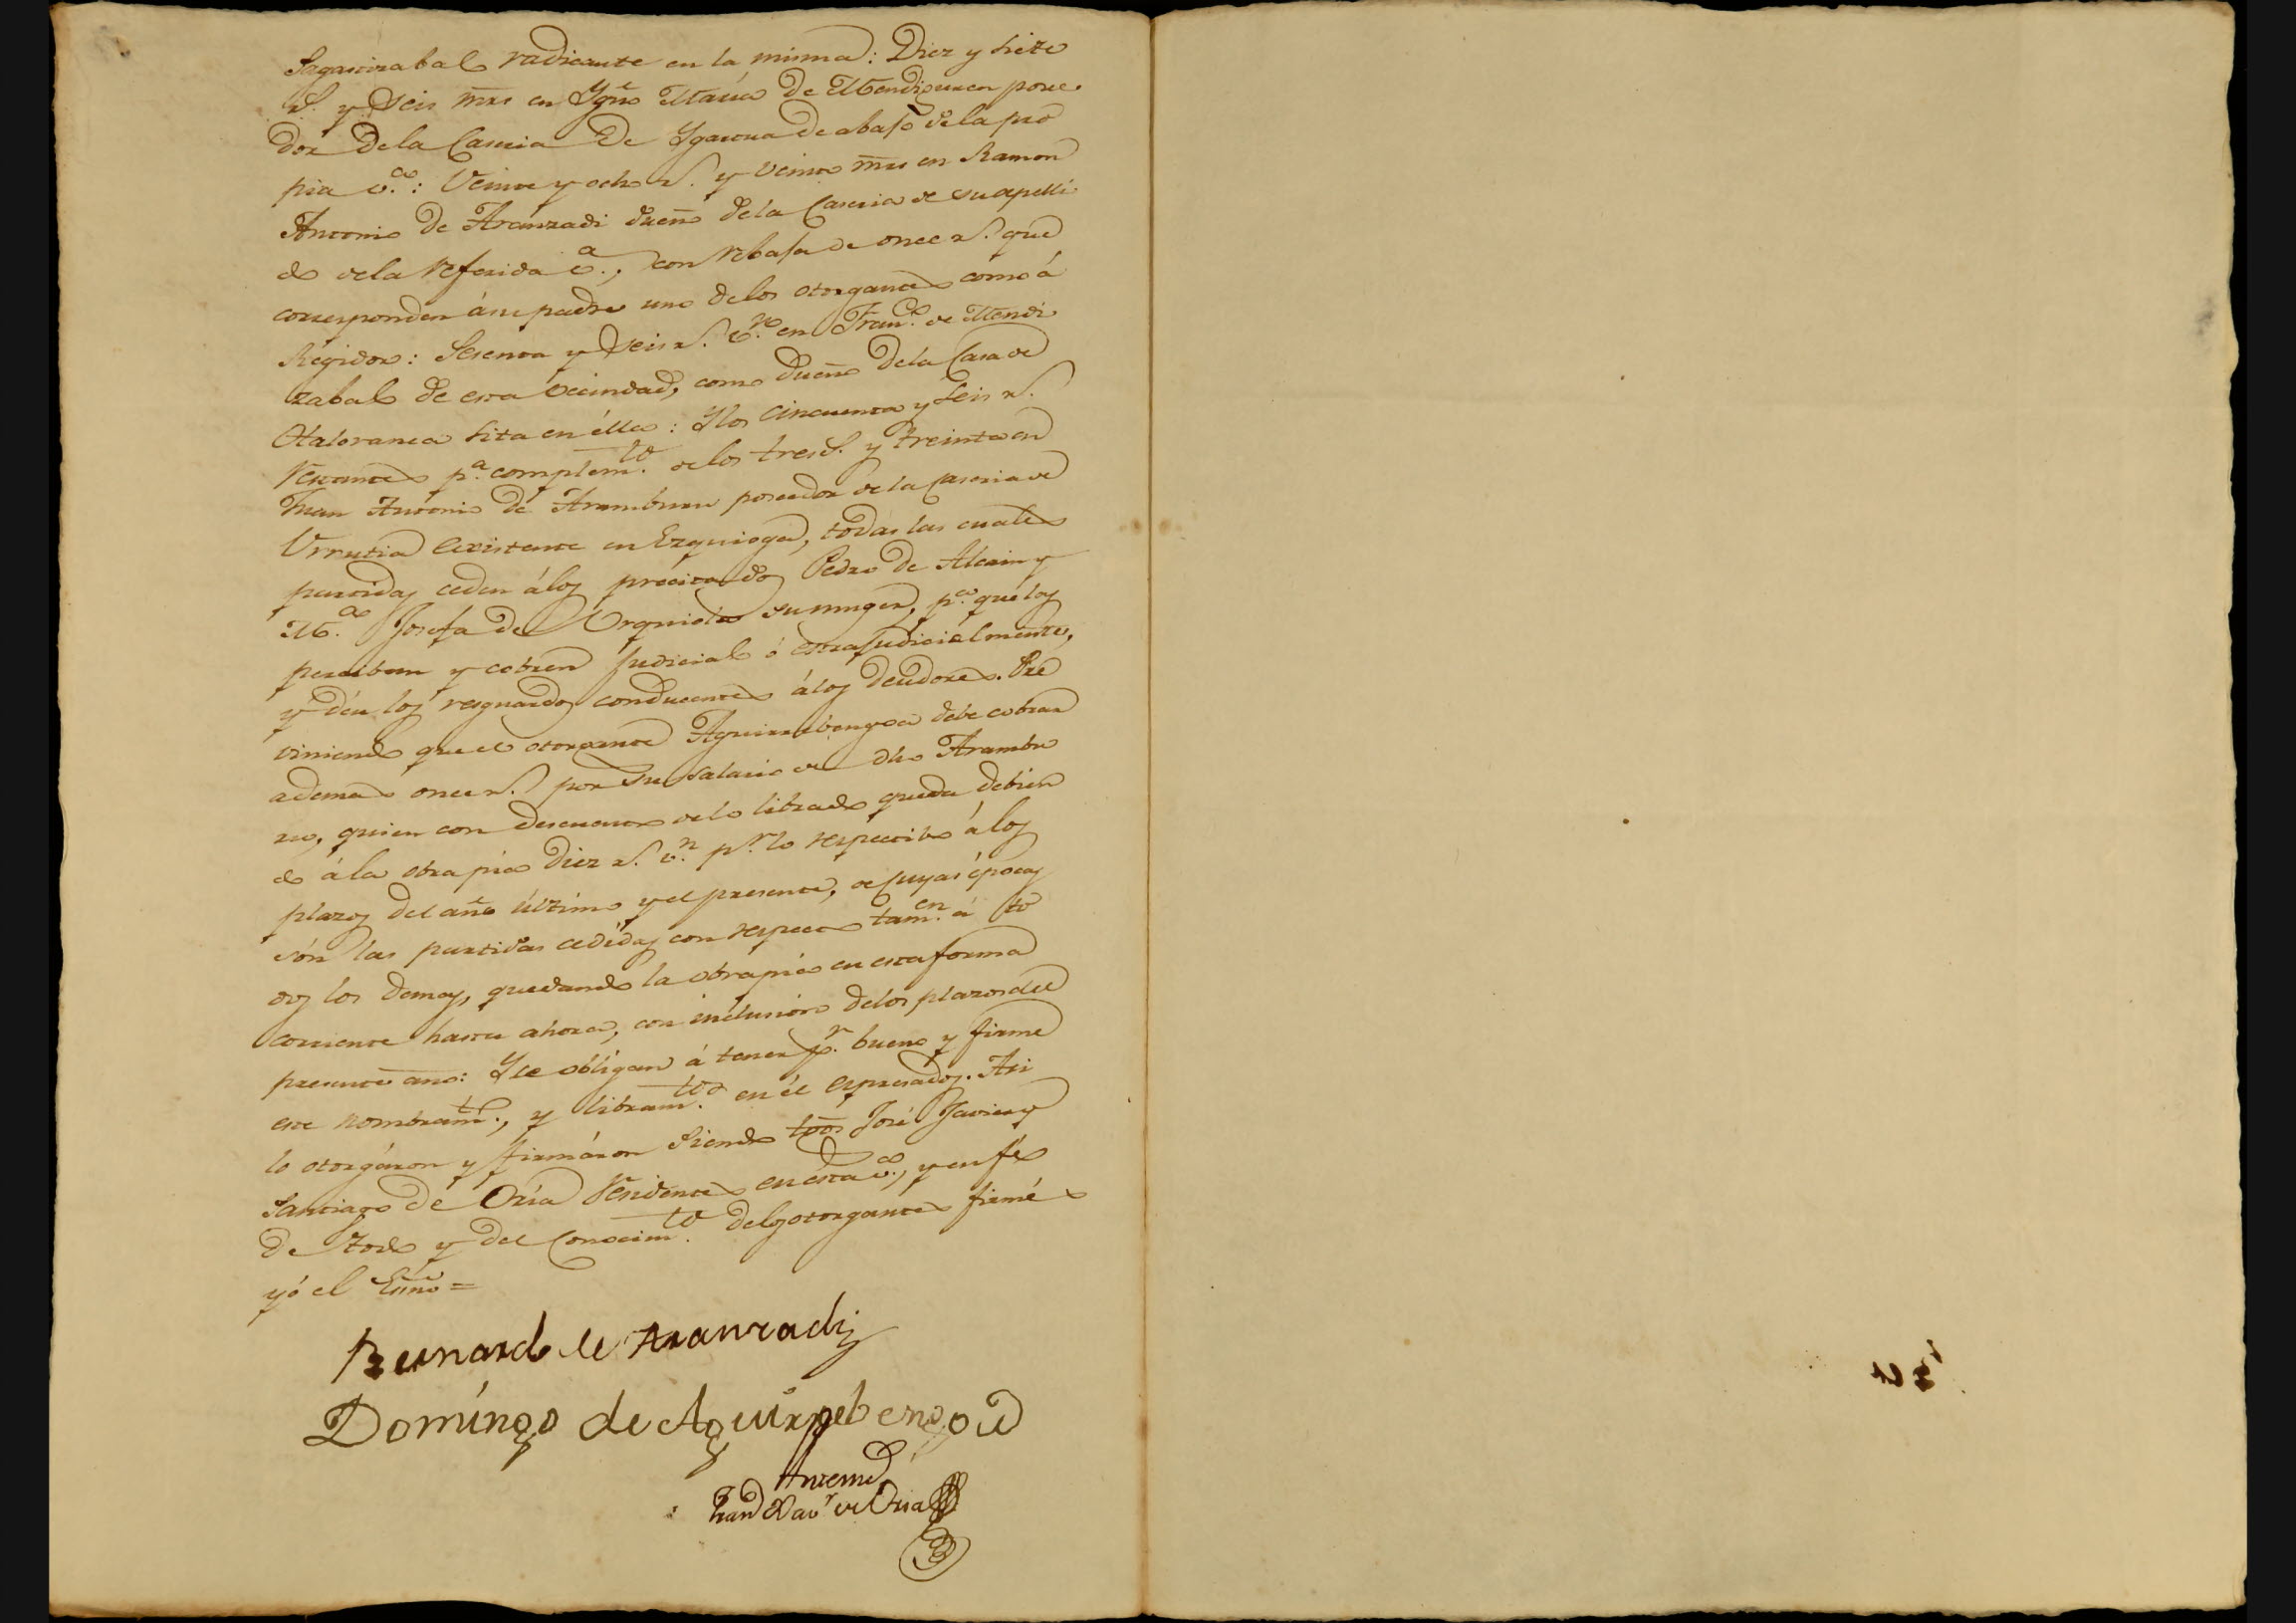 Sagastizabal radicante en la misma: Diez y siete
r.^s y seis mrs en Ygn.o María de Mendizuren posee-
dor de la Caseria de Ygarzua de abajo de la pro
pia v.^a: Veinte y ocho r.^s y veinte mrs en Ramon
Antonio de Aranzadi dueño de la Caseria de su apelli
do de la referida v.^a, con rebaja de once r.^s que
corresponden á su padre uno de los otorgantes como á
Regidor: Sesenta y seis r.^s v.^n en Fran.^co de Mendi
zabal de esta vecindad, como dueño de la Casa de
Otaloranea sita en élla: Y los cincuenta y seis r.^s
restantes p.^a complem.^to de los tresc.^s y treinta en
Juan Antonio de Aramburu poseedor de la Caseria de
Urrutia existente en Ezquioga, todas las cuales
partidas ceden á los precitados Pedro de Alcain y
M.^a Josefa de Urquiola su muger, p.^a que los
perciban y cobren judicial ó estrajudicialmente,
y dén los resguardos conducentes á los deudores. Pre
viniendo que el otorgante Aguirrebengoa debe cobrar
ademas once r.^s por su salario de dho Arambu
ru, quien con descuento de lo librado queda debien
do á la obra pia diez r.^s v.^n p.^r lo respectivo á los
plazos del año último y el presente, de cuyas épocas
són las partidas cedidas con respecto tam.^en á to
dos los demas, quedando la obra pia en esta forma
corriente hasta ahora, con inclusion de los plazos del
presente año: Y se obligan á tener p.^r bueno y firme
este nombram.^to, y libram.^tos en él espresados. Asi
lo otorgáron y firmáron siendo t͞gos José Javier y
Santiago de Oria residentes en esta v.^a, y en fé
de todo y del conocim.^to de los otorgantes firmé
yó el Esñno =
Bernardo de Aranzadi
Domíngo de Aguirrebengoa
Antemi
Juan Xav.^r de Oria